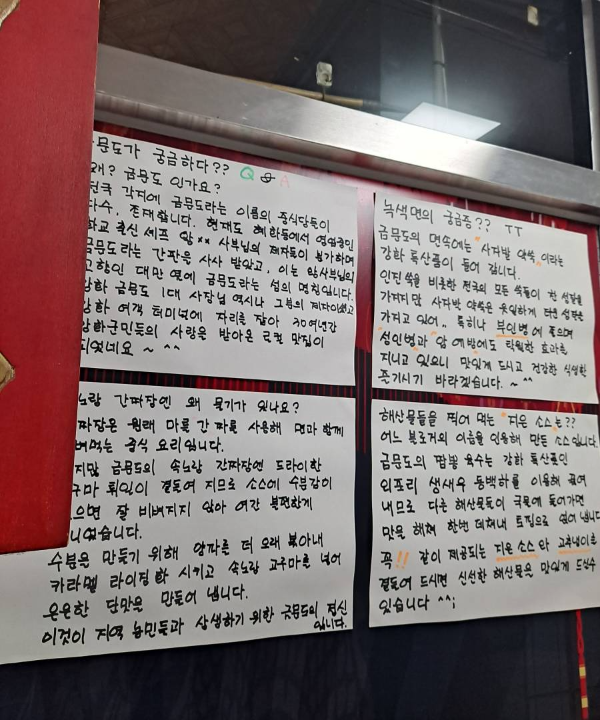 문도가 궁금하다?? Q & A
왜? 금문도 인가요?
전국 각지에 금문도라는 이름의 중식당들이
다수, 존재합니다. 현재도 혜화동에서 영업중인
화교 출신 셰프 사부님의 제자들이 불가하며
금문도라는 간판을 사사 받았고, 이는 사부님의
고향인 대만 옆에 금문도라는 섬의 명칭입니다.
강화 금문도 1대 사장님 역시나 그분의 제자이였고
강화 여객 터미널에 자리를 잡아 30여년간
강화군민들의 사랑을 받아온 로컬 맛집이
되였네요 ~ ^^
노랑 간짜장엔 왜 물기가 있나요?
짜장은 원래 마를 간 짜를 사용해 면과 함께
벼먹는 중식 요리입니다.
지만 금문도의 속노랑 간짜장엔 드라이한
구마 튀김이 곁들여 지므로 소스에 수분감이
으면 잘 비벼지지 않아 여간 불편한게
니였습니다.
수분을 만들기 위해 양파를 더 오래 볶아내
카라멜 라이징화 시키고 속노랑 고구마를 넣어
은은한 단맛을 만들어 냅니다.
이것이 지역 농민들과 상생하기 위한 금문도의 정신
입니다.
녹색면의 궁금증?? ㅜㅜ
금문도의 면속에는 "사자발 약쑥"이라는
강화 특산품이 들어 갑니다.
인진쑥을 비롯한 전국의 모든 쑥들이 찬 성질을
가져지만 사자발 약쑥은 유일하게 더운 성질은
가지고 있어.. 특히나 부인병에 좋으며
성인병과 암 예방에도 탁월한 효과를
지니고 있으니 맛있게 드시고 건강한 식생활
즐기시기 바라겠습니다. ~ ^^
해산물들을 찍어 먹는 "지은 소스"는??
어느 블로거의 이름을 인용해 만든 소스입니다.
금문도의 짬뽕 육수는 강화 특산품인
외포리 생새우 동백하를 이용해 끓여
내므로 다른 해산물들이 국물에 들어가면
맛을 해쳐 한번 데쳐내 토핑으로 얹어 냅니다
꼭!! 같이 제공되는 지은소스와 고추냉이를
곁들여 드시면 신선한 해산물을 맛있게 드실수
있습니다 ^^;